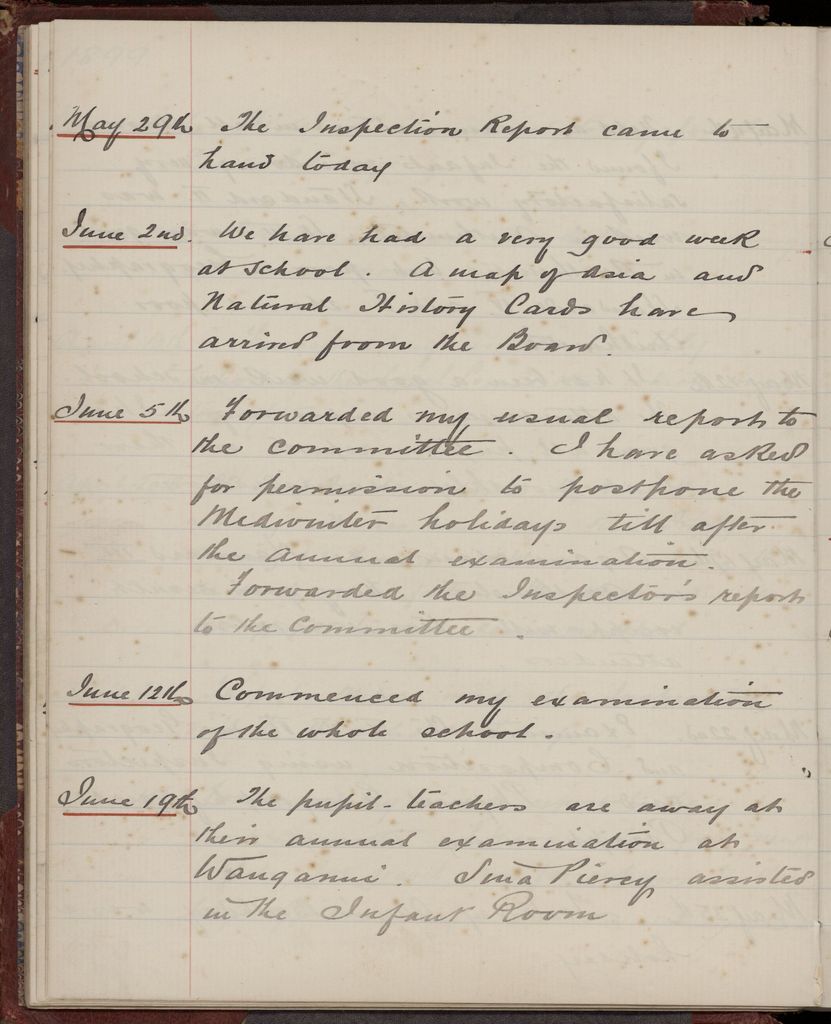 May 29th The Inspection Report came to
hand today
June 2nd. We have had a very good week
at school. A map of Asia and
Natural History Cards have
arrived from the Board.
June 5th Forwarded my usual report to
the committee. I have asked
for permission to postpone the
Midwinter holidays till after
the annual examination.
Forwarded the Inspector's report
to the Committee.
June 12th Commenced my examination
of the whole school.
June 19th The pupil-teachers are away at
their annual examination at
Wanganui. Piercy assisted
in the Infant Room